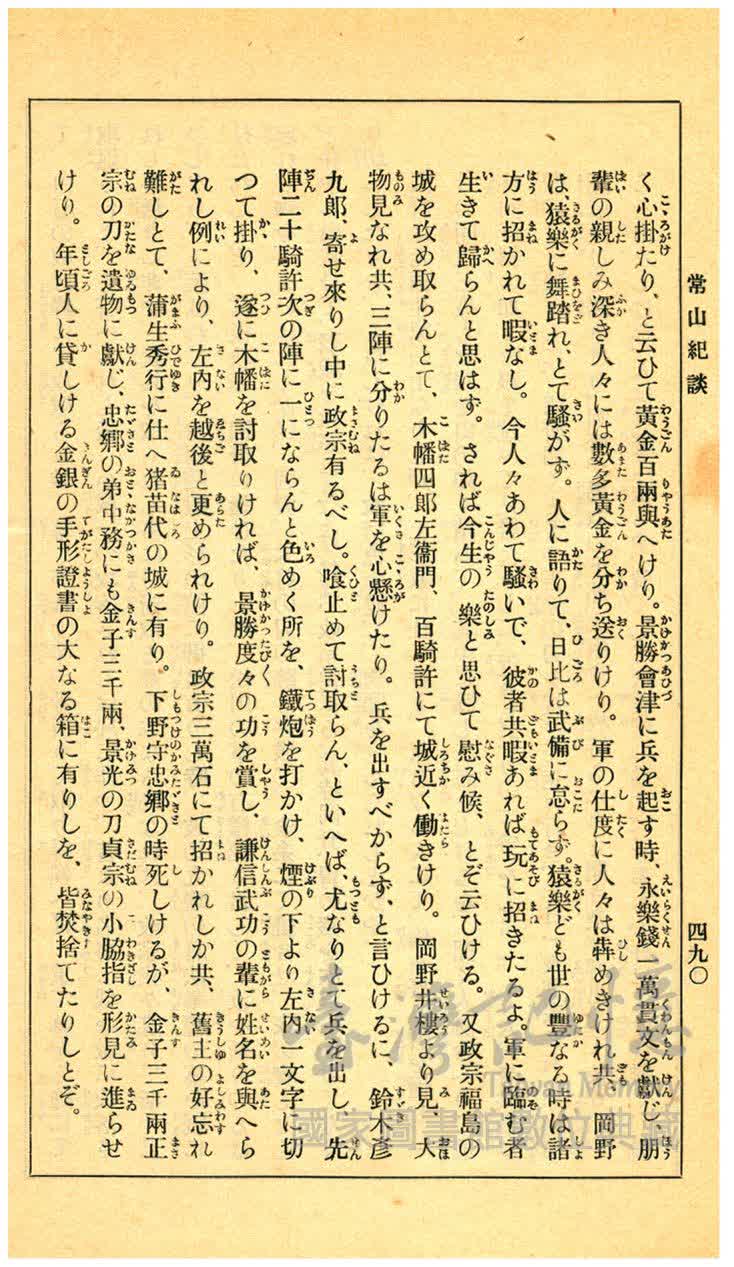 常山紀談
四九〇
く心掛たり、と云ひて黃金百兩與へけり。景勝會津に兵を起す時、永樂錢一萬貫文を獻じ、朋
輩の親しみ深き人々には數多黃金を分ち送りけり。軍の仕度に人々は犇めきけれ共、岡野
は、猿樂に舞踏れ、とて騷がず。人に語りて、日比は武備に怠らず。猿樂ども世の豐なる時は諸
方に招かれて暇なし。今人々あわて騷いで、彼者共暇あれば玩に招きたるよ。軍に臨む者
生きて歸らんと思はず。されば今生の樂と思ひて慰み候、とぞ云ひける。又政宗福島の
城を攻め取らんとて、木幡四郎左衞門、百騎許にて城近く働きけり。岡野井樓より見、大
物見なれ共、三陣に分りたるは軍を心懸けたり。兵を出すべからず、と言ひけるに、鈴木彥
九郎、寄せ來りし中に政宗有るべし。喰止めて討取らん、といへば、尤なりとて兵を出し、先
陣二十騎許次の陣に一にならんと色めく所を、鐵炮を打かけ、煙の下より左內一文字に切
つて掛り、遂に木幡を討取りければ、景勝度々の功を賞し、謙信武功の輩に姓名を與へら
れし例により、左內を越後と更められけり。政宗三萬石にて招かれしか共、舊主の好忘れ
難しとて、蒲生秀行に仕へ猪苗代の城に有り。下野守忠鄕の時死しけるが、金子三千兩正
宗の刀を遺物に獻じ、忠鄕の弟中務にも金子三千兩、景光の刀貞宗の小脇指を形見に進らせ
けり。年頃人に貸しける金銀の手形證書の大なる箱に有りしを、皆焚捨てたりしとぞ。
臺灣記憶
Taiwan Memory
國家圖書館數位典藏